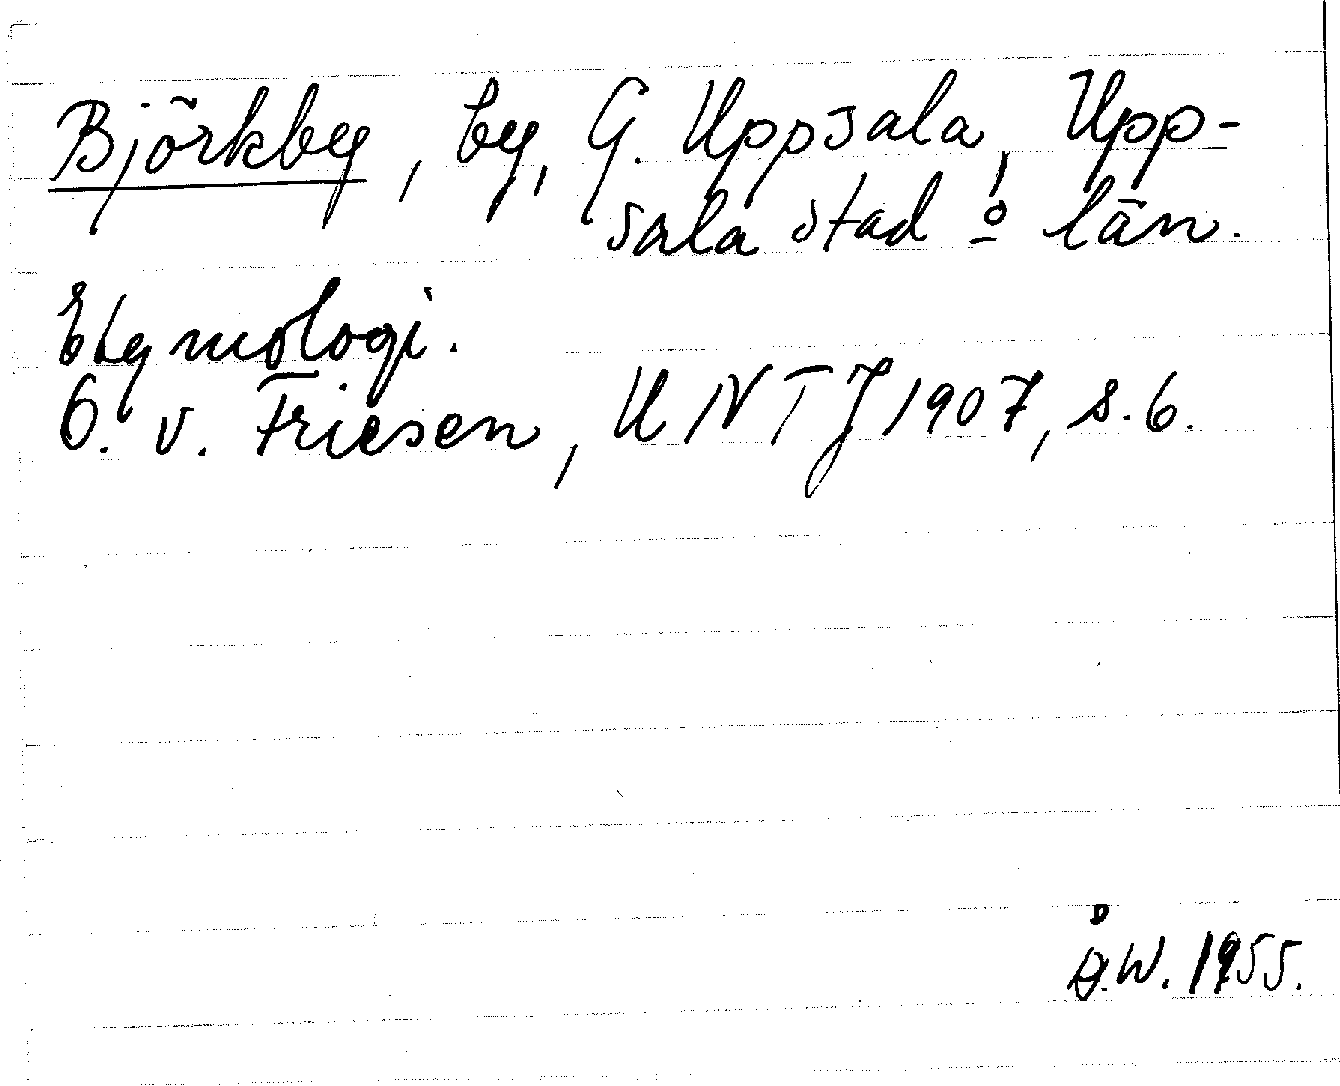 Björkby, by, G. Uppsala, Upp-
sala stad o län.
Etymologi.
O. v. Friesen, UNTJ 1907, s. 6.
Å.W. 1955.